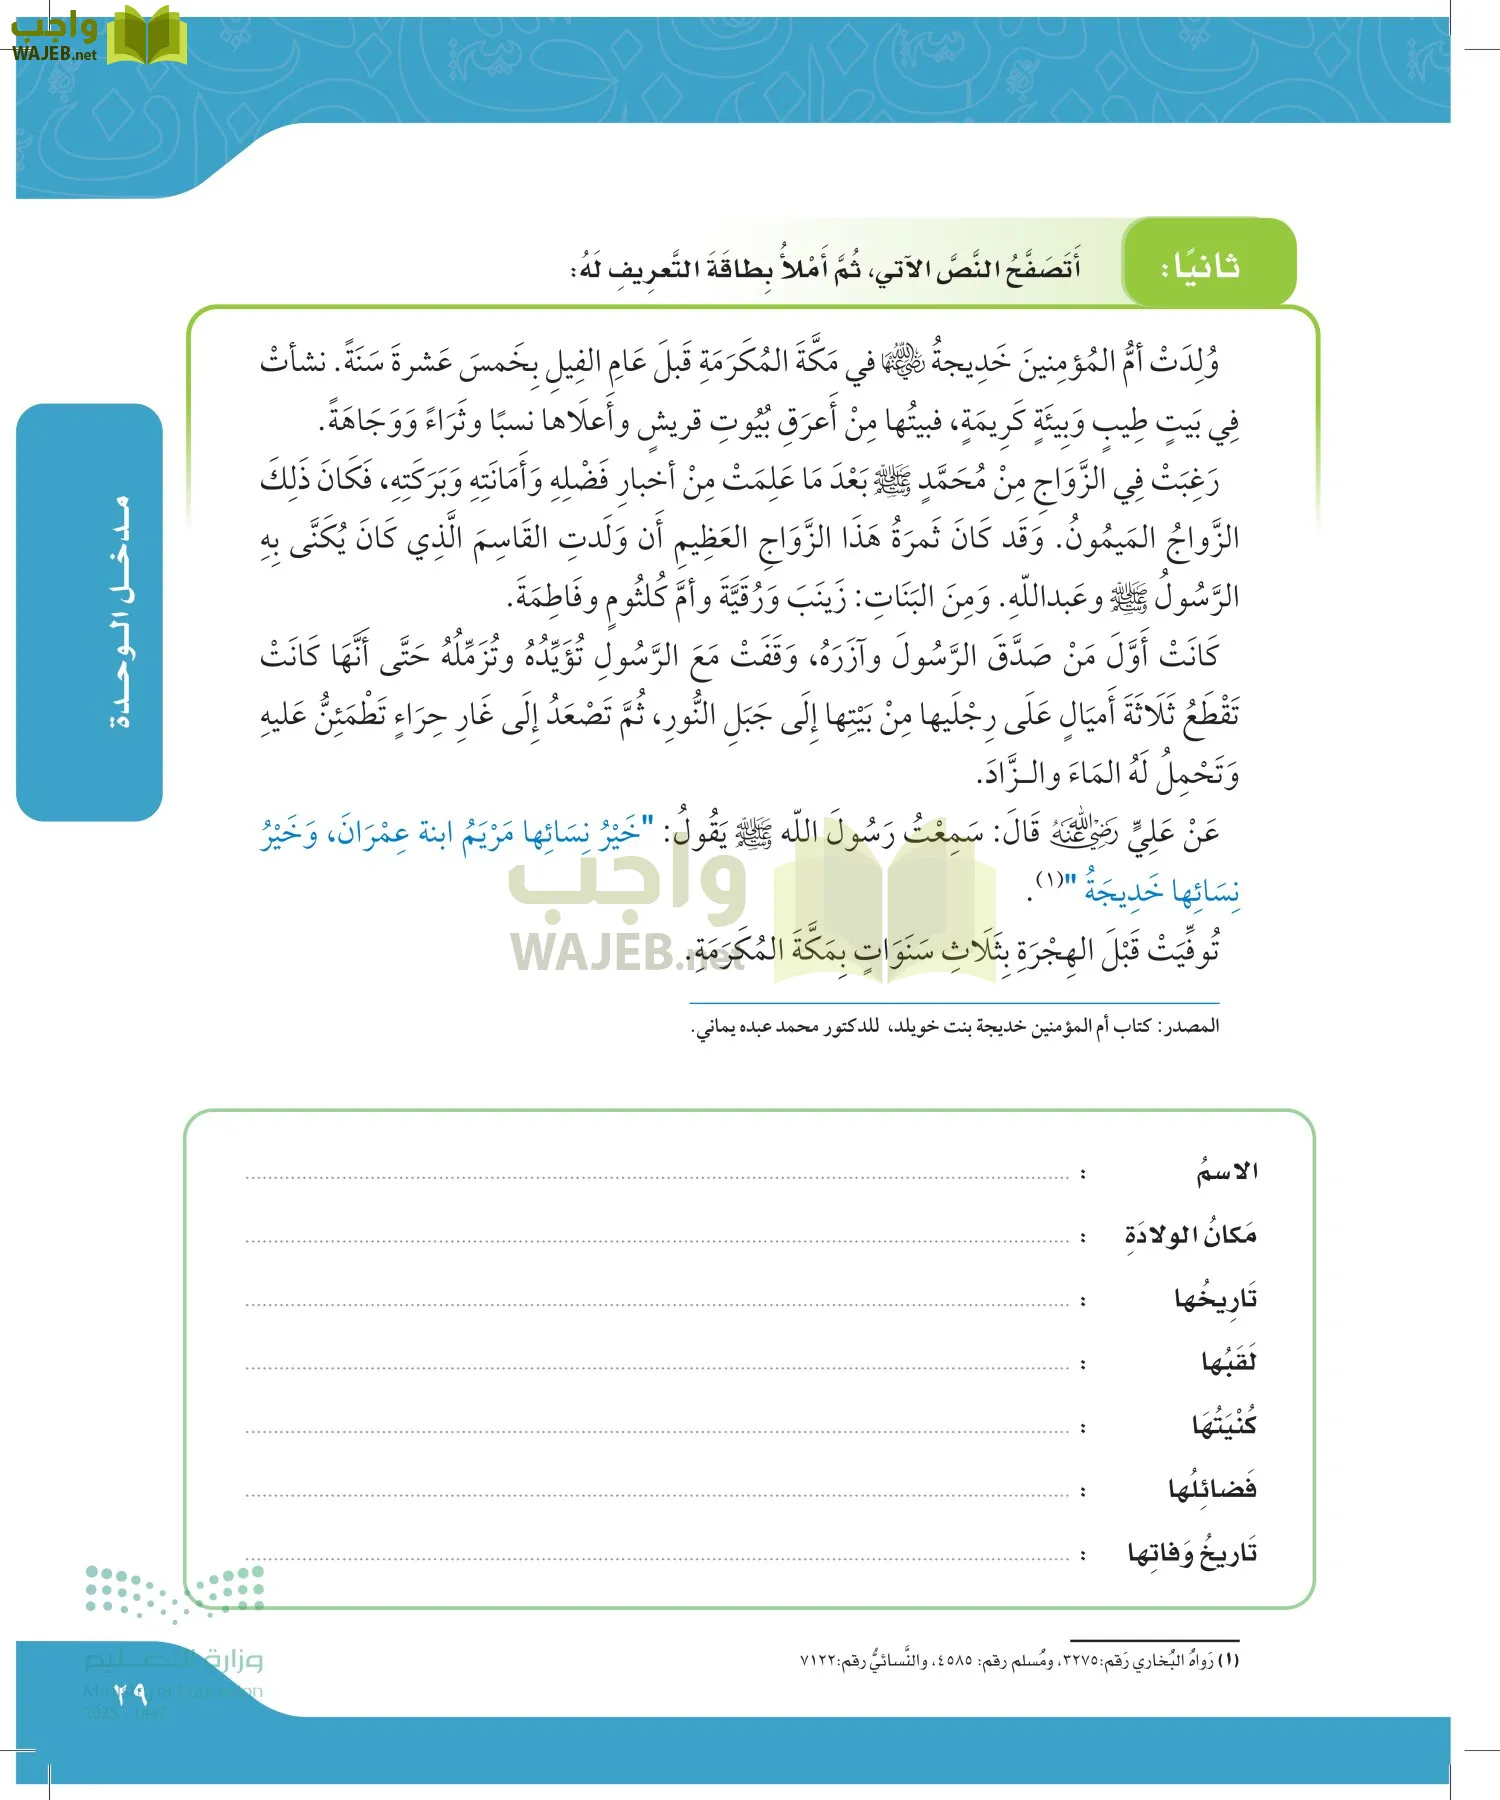 واجب
WAJEB.net
ثانيًا:
أَتَصَفَّحُ النَّصَّ الآتي، ثُمَّ أَمْلأُ بِطاقَةَ التَّعرِيفِ لَهُ:
وُلِدَتْ أمُّ المُؤمِنينَ خَدِيجةُ رضي الله عنها في مَكَّةَ المُكَرَمَةِ قَبلَ عَامِ الفِيلِ بِخَمسَ عَشرةَ سَنَةً. نشأتْ
فِي بَيتٍ طيبٍ وَبِيئَةٍ كَرِيمَةٍ، فبيتُها مِنْ أَعرَقِ بُيُوتِ قريشٍ وأَعلَاها نسبًا وثَرَاءً وَوَجَاهَةً.
رَغِبَتْ فِي الزَّوَاجِ مِنْ مُحَمَّدٍ ﷺ بَعْدَ مَا عَلِمَتْ مِنْ أخبارِ فَضْلِهِ وَأَمَانَتِهِ وَبَرَكَتِهِ، فَكَانَ ذَلِكَ
الزَّواجُ المَيمُونُ. وَقَد كَانَ ثَمرَةُ هَذَا الزَّوَاجِ العَظِيمِ أَن وَلَدتِ القَاسِمَ الَّذِي كَانَ يُكَنَّى بِهِ
الرَّسُولُ ﷺ وعَبداللّهِ. وَمِنَ البَنَاتِ: زَينَبَ وَرُقَيَّةَ وأمَّ كُلثُومٍ وفَاطِمَةَ.
كَانَتْ أَوَّلَ مَنْ صَدَّقَ الرَّسُولَ وآزَرَهُ، وَقَفَتْ مَعَ الرَّسُولِ تُؤَيِّدُهُ وتُزَمِّلُهُ حَتَّى أَنَّهَا كَانَتْ
تَقْطَعُ ثَلَاثَةَ أَميَالٍ عَلَى رِجْلَيها مِنْ بَيْتِها إلَى جَبَلِ النُّورِ، ثُمَّ تَصْعَدُ إلَى غَارِ حِرَاءٍ تَطْمَئِنُّ عَليهِ
وَتَحْمِلُ لَهُ المَاءَ والـزَّادَ.
عَنْ عَلِيٍّ رضي الله عنه قَالَ: سَمِعْتُ رَسُولَ اللّه ﷺ يَقُولُ: "خَيْرُ نِسَائِها مَرْيَمُ ابنة عِمْرَانَ، وَخَيْرُ
نِسَائِها خَدِيجَةُ "(١).
تُوفِّيَتْ قَبْلَ الهِجْرَةِ بِثَلَاثِ سَنَوَاتٍ بِمَكَّةَ المُكَرَمَةِ.
واجب
WAJEB.net
المصدر: كتاب أم المؤمنين خديجة بنت خويلد، للدكتور محمد عبده يماني.
مـدخـل الـوحـدة
الاسمُ :
مَكانُ الولادَةِ :
تَارِيخُها :
لَقَبُها :
كُنْيَتُهَا :
فَضائِلُها :
تَاريخُ وَفاتِها :
(١) رَواهُ البُخاري رَقم:٣٢٧٥، ومُسلم رقم: ٤٥٨٥، والنَّسائيُّ رقم:٧١٢٢
وزارة التعليم
Ministry of Education
2025 - 1447
٣٩